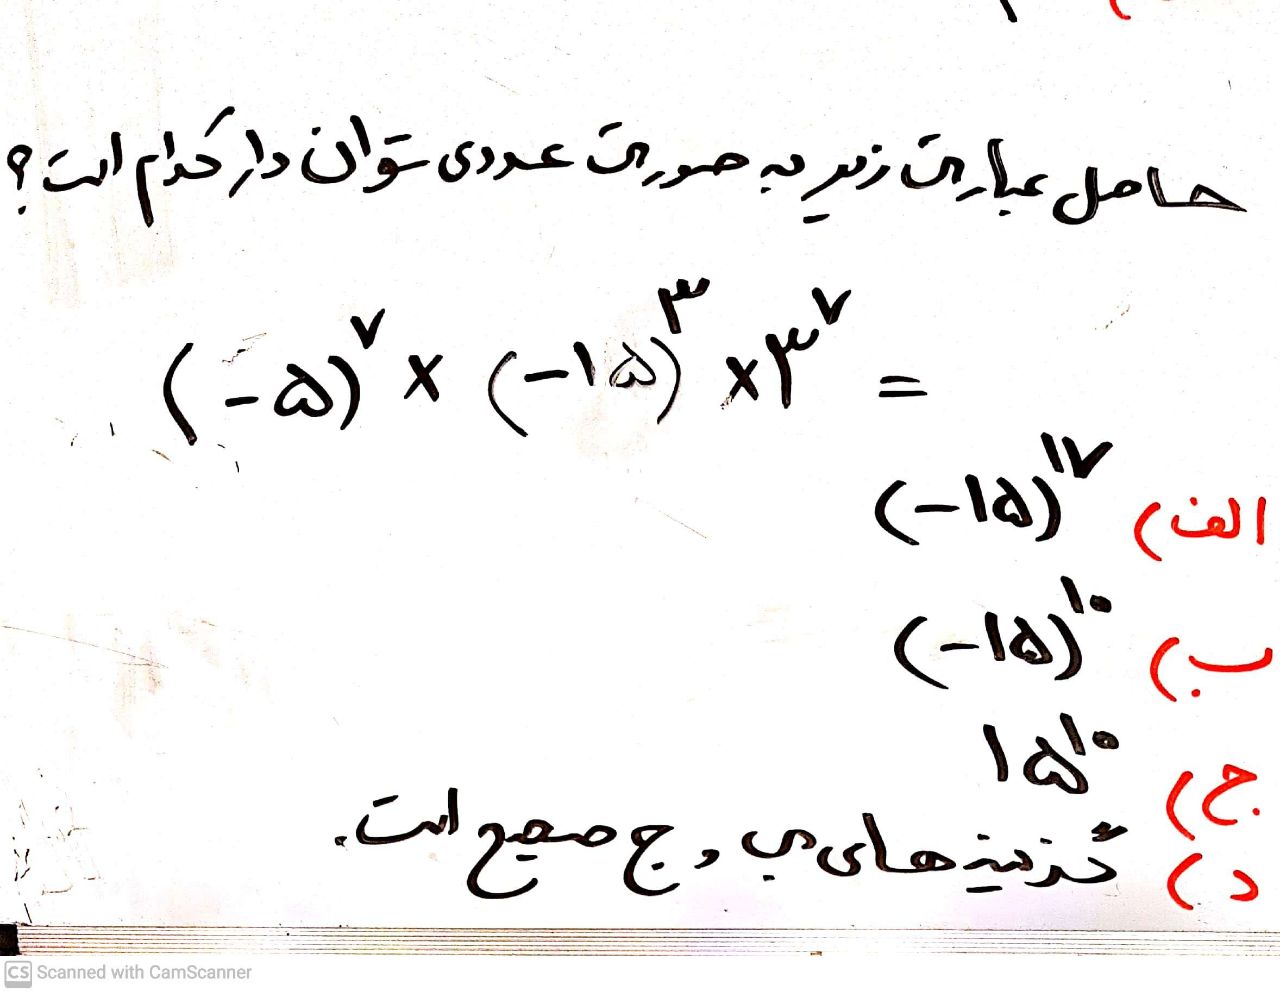 حاصل عبارت زیر به صورت عددی توان دار کدام است؟
(-۵)^۷ × (-۱۵)^۳ × ۳^۷ =
الف) (-۱۵)^۱۷
ب) (-۱۵)^۱۰
ج) ۱۵^۱۰
د) گزینه های ب و ج صحیح است.
CS Scanned with CamScanner